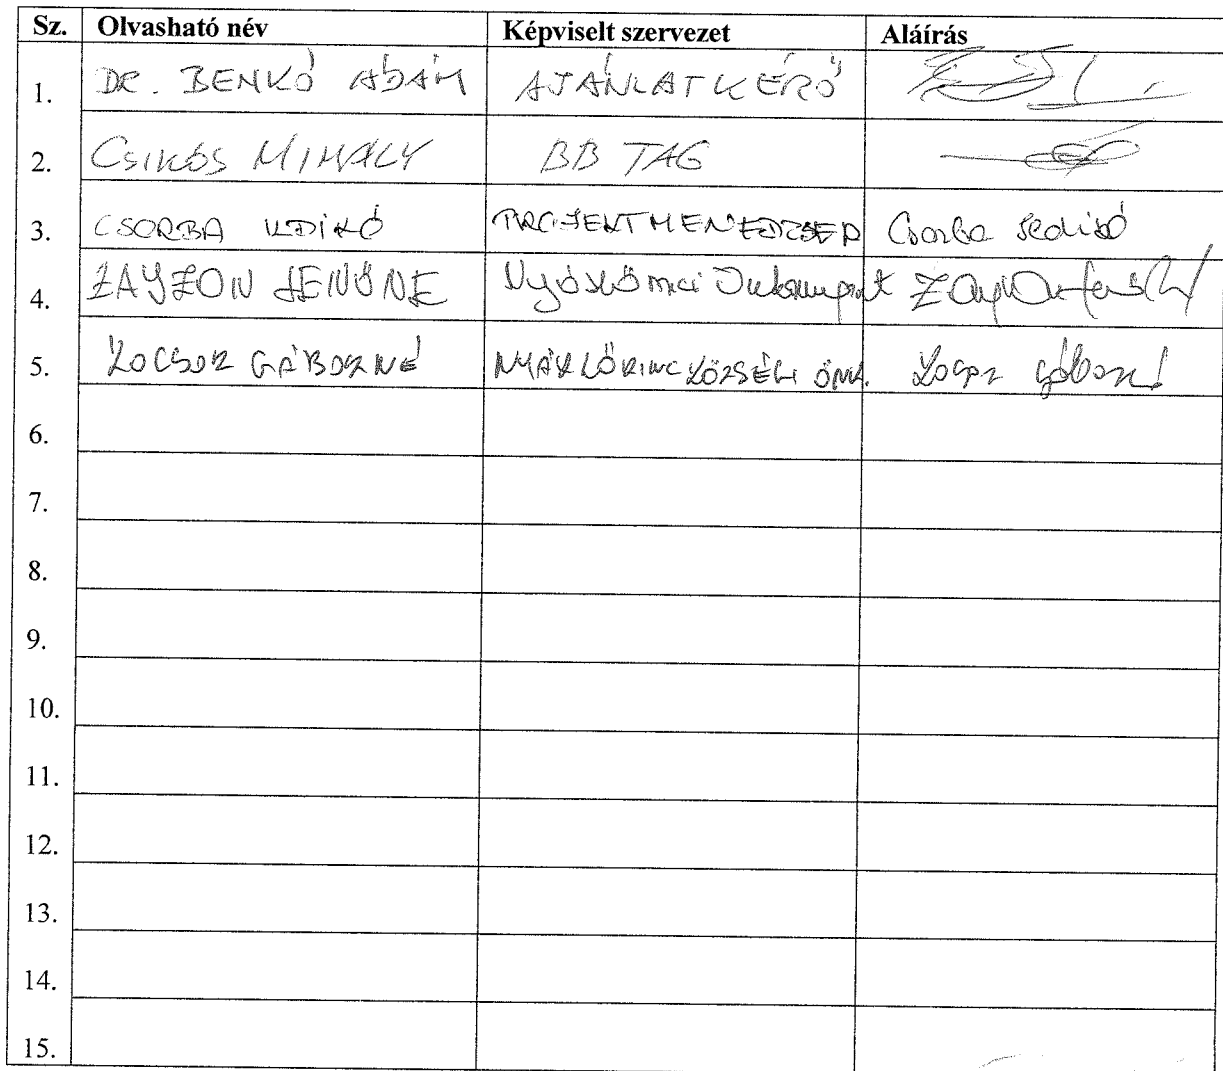 Sz. Olvasható név Képviselt szervezet Aláírás
1. DR. BENKŐ ÁDÁM AJÁNLATKÉRŐ
2. CSIKÓS MIHÁLY BB TAG
3. CSORBA ILDIKÓ PROJEKTMENEDZSER Csorba Ildikó
4. ZAYZON JENŐNÉ
5. KOCSOR GÁBORNÉ NYÁRLŐRINC KÖZSÉGI ÖNK. Kocsor Gáborné
6.
7.
8.
9.
10.
11.
12.
13.
14.
15.